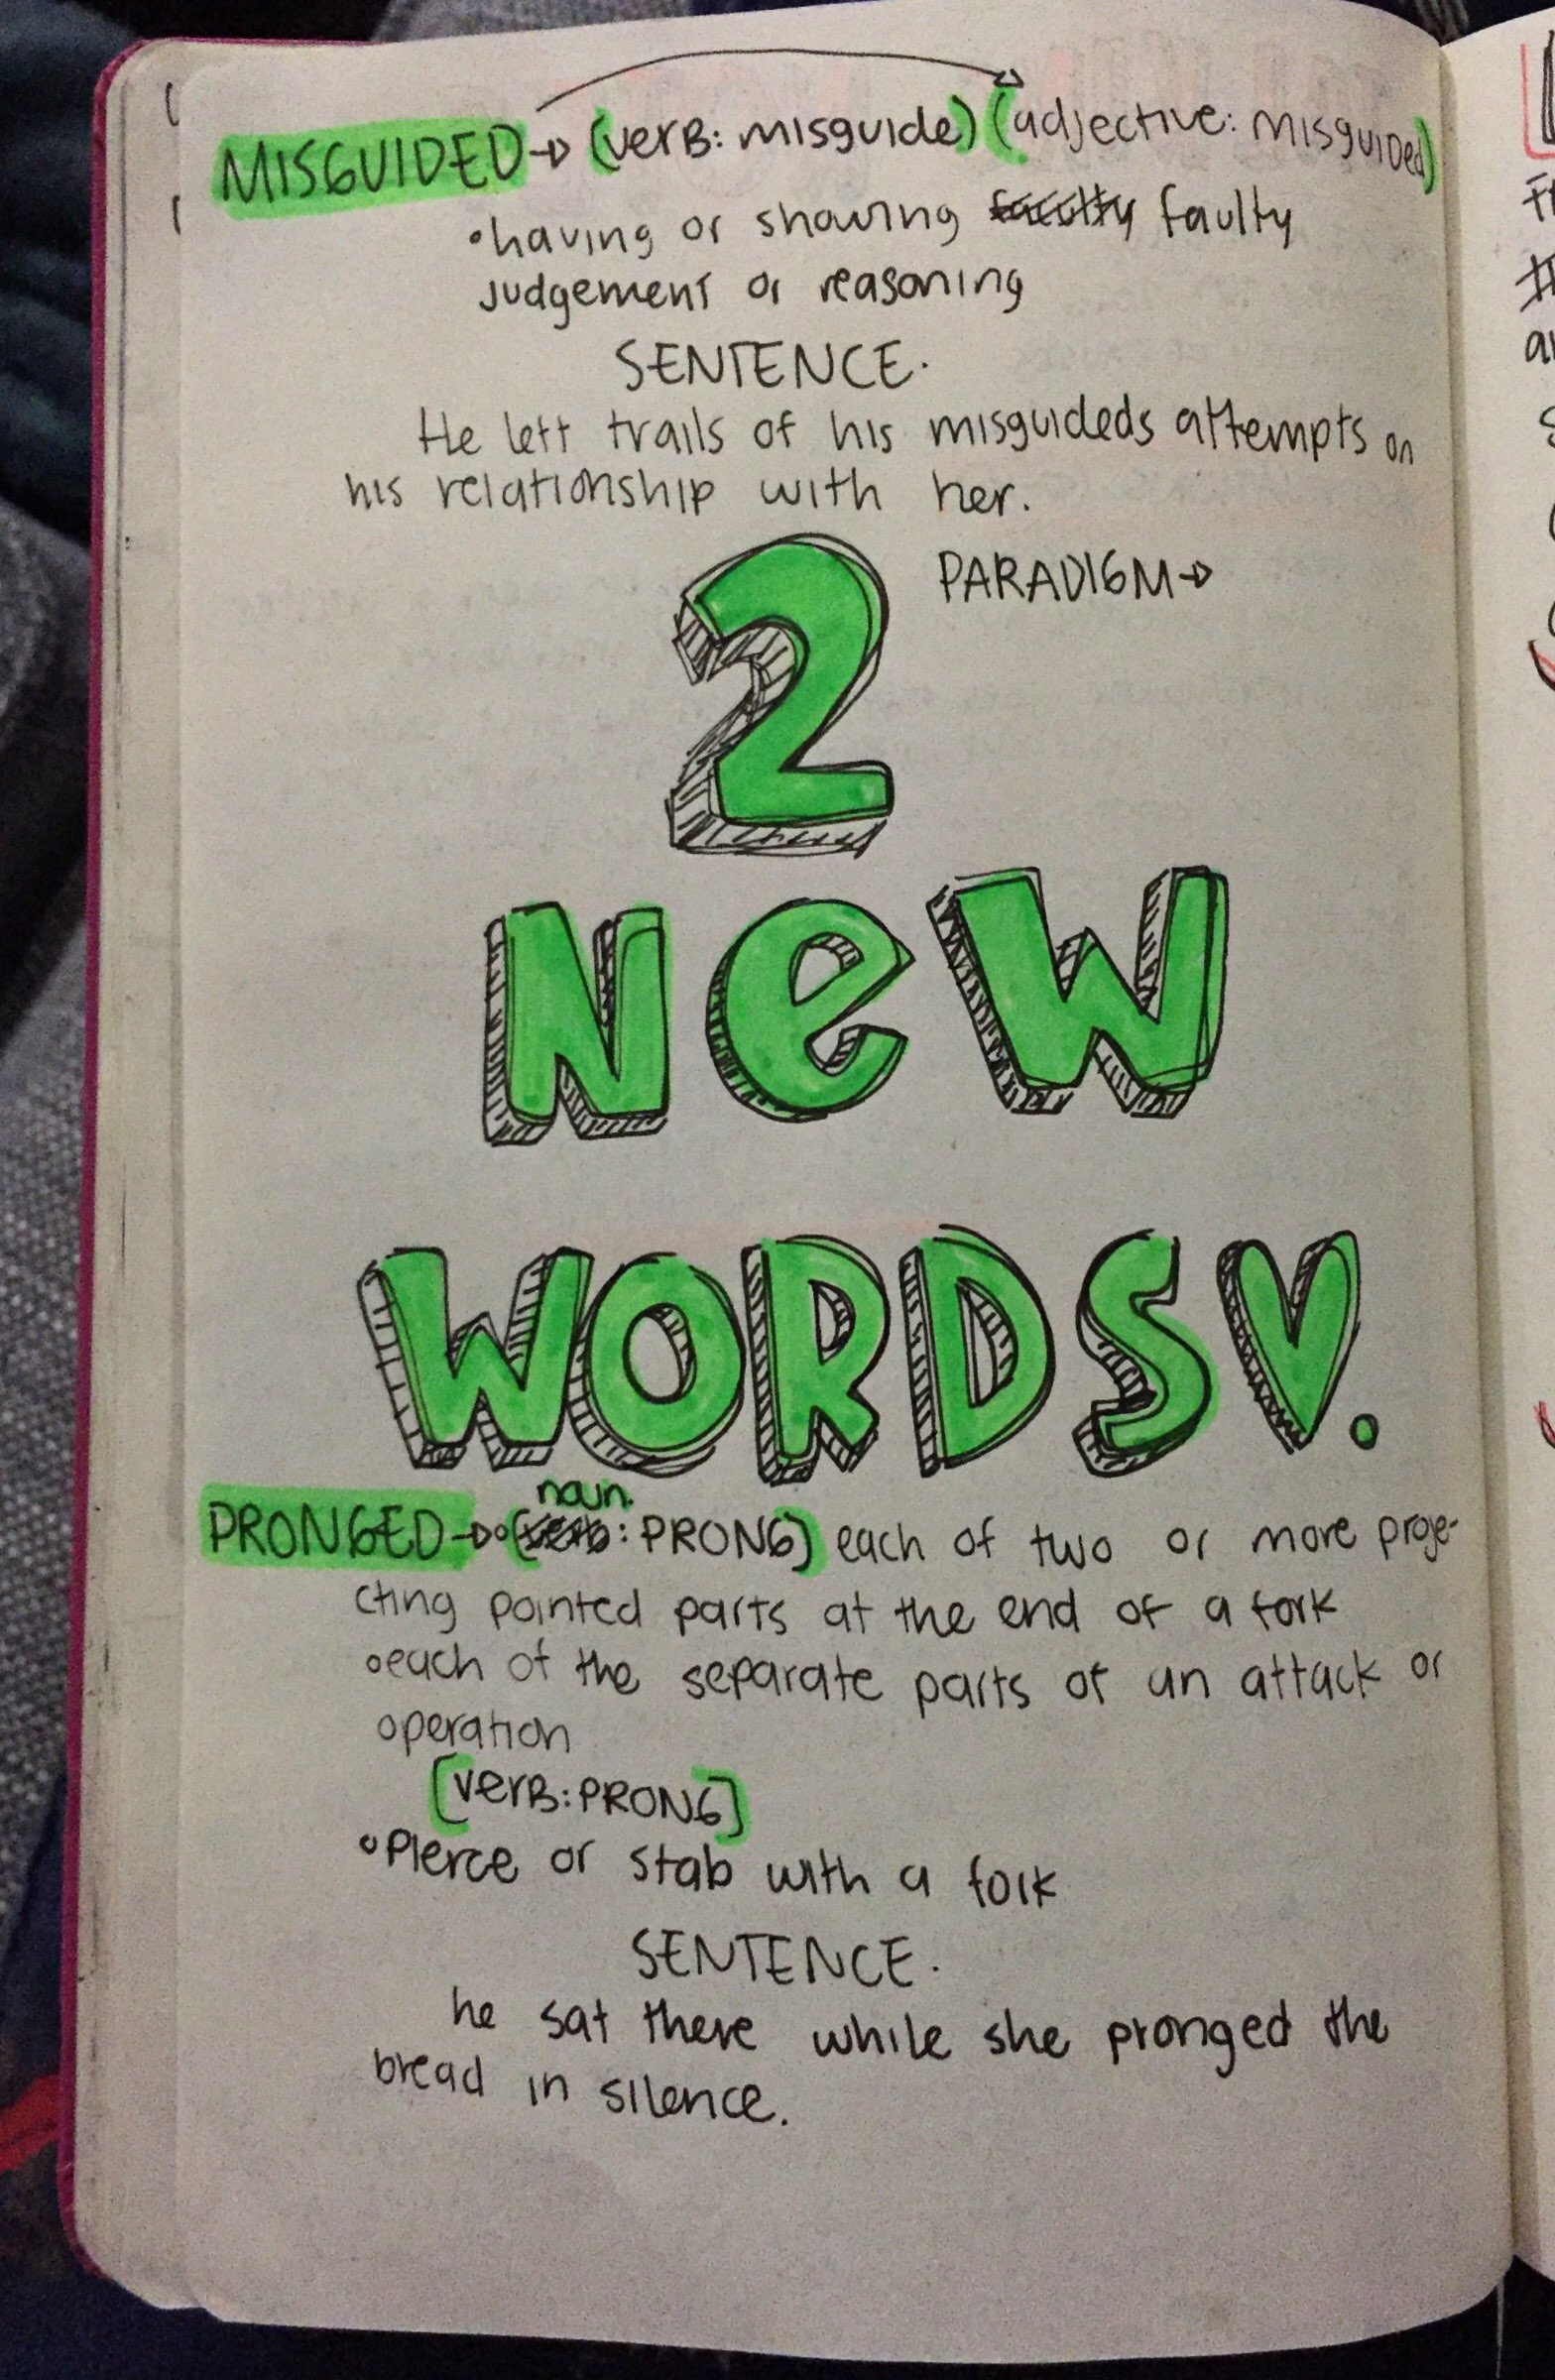 MISGUIDED → (verB: misguide) (adjective: misguided)
•having or showing faculty faulty
judgement or reasoning
SENTENCE.
He left trails of his misguideds attempts on
his relationship with her.
PARADIGM→
2
NeW
WORDS V.
noun.
PRONGED→•(verb: PRONG) each of two or more proje-
cting pointed parts at the end of a fork
•each of the separate parts of an attack or
operation
[verB: PRONG]
•Pierce or stab with a fork
SENTENCE.
he sat there while she pronged the
bread in silence.